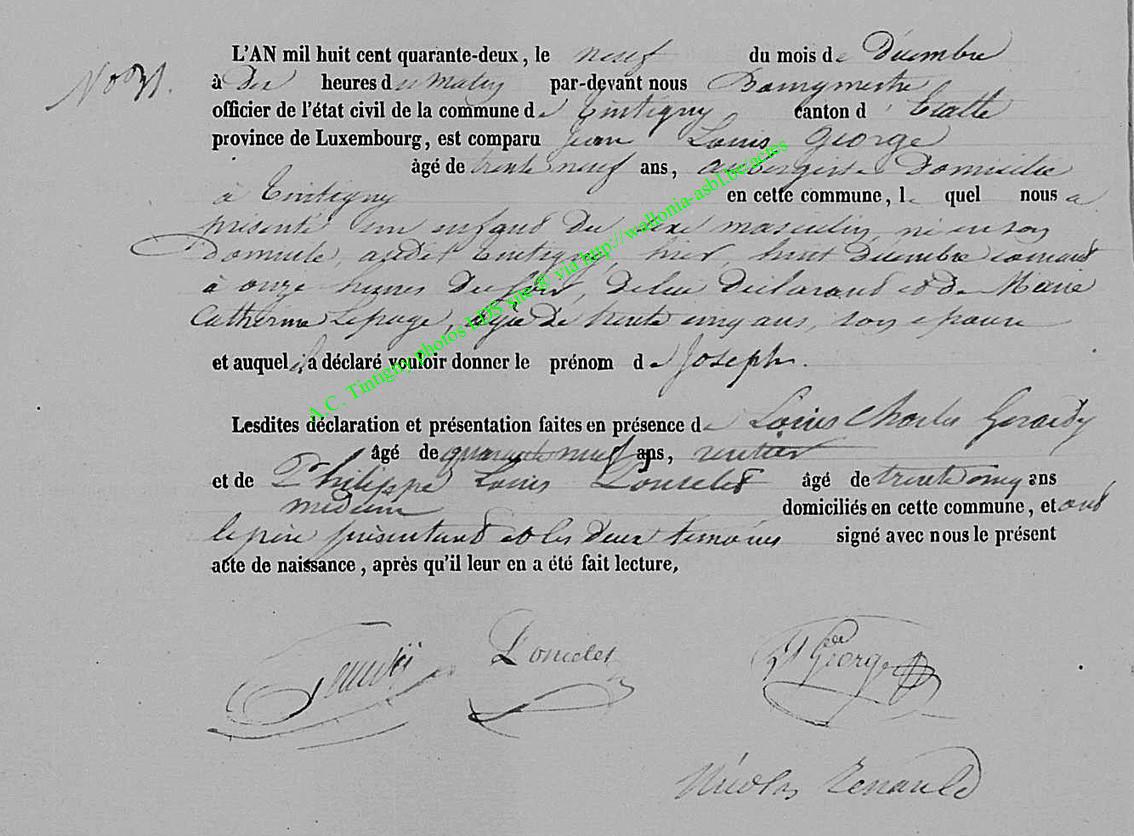 L'AN mil huit cent quarante-deux, le neuf du mois de Décembre
No 31. à dix heures du Matin par-devant nous Bourgmestre
officier de l'état civil de la commune de Tintigny canton d' Etalle
province de Luxembourg, est comparu Jean Louis George
âgé de trente neuf ans, aubergiste Domicilié
à Tintigny en cette commune, le quel nous a
présenté un enfant du sexe masculin né en son
Domicile audit Tintigny, hier huit Décembre courant
à onze heures du soir, de lui déclarant et de Marie
Catherine Lepage, agée de trente cinq ans, son épouse
et auquel il a déclaré vouloir donner le prénom de Joseph.
Lesdites déclaration et présentation faites en présence de Louis Charles Gerardy
âgé de quarante neuf ans, rentier
et de Philippe Louis Lonclet âgé de trente cinq ans
médecin domiciliés en cette commune, et ont
le père présentant et les deux témoins signé avec nous le présent
acte de naissance, après qu'il leur en a été fait lecture,
George
Nicolas Renauld
A.C. Tintigny photos LDS site @ via http://wallonia-asbl.be/actes